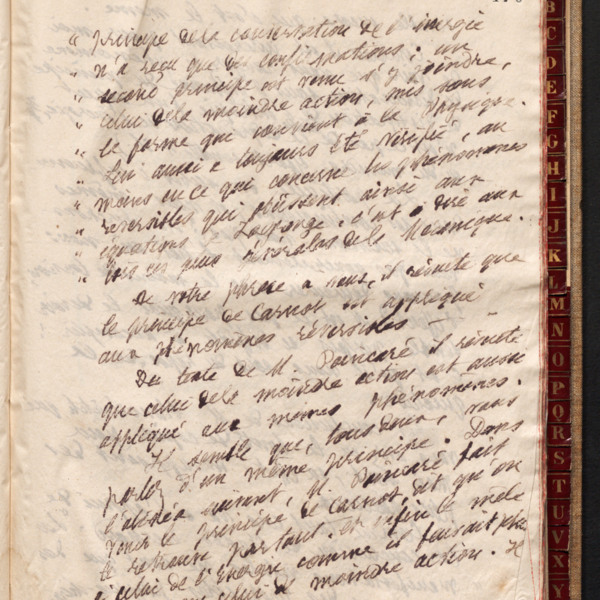 " principe de la conservation de l'énergie
" n'a reçu que des confirmations; un
" second principe est venu s'y joindre,
" celui de la moindre action, mis sous
" la forme qui convient à la Physique.
" Lui aussi a toujours été vérifié, au
" moins en ce qui concerne les phénomènes
" réversibles qui obéissent ainsi aux
" équations de Lagrange, c'est à dire aux
" lois les plus générales de la Mécanique.
De votre phrase à vous, il résulte que
le principe de Carnot est appliqué
aux phénomènes réversibles
Du texte de M. Poincaré il résulte
que celui de la moindre action est aussi
appliqué aux mêmes phénomènes.
Il semble que, tous deux, vous
parlez d'un même principe. Dans
l'alinéa suivant, M. Poincaré fait
le principe de Carnot, dit qu'on
le retrouve partout et enfin le mêle
à celui de l'Énergie comme il faisait plus
celui de moindre action. Il
B
C
D
E
F
G
H
I
J
K
L
M
N
O
P
Q
R
S
T
U
V
X
Y